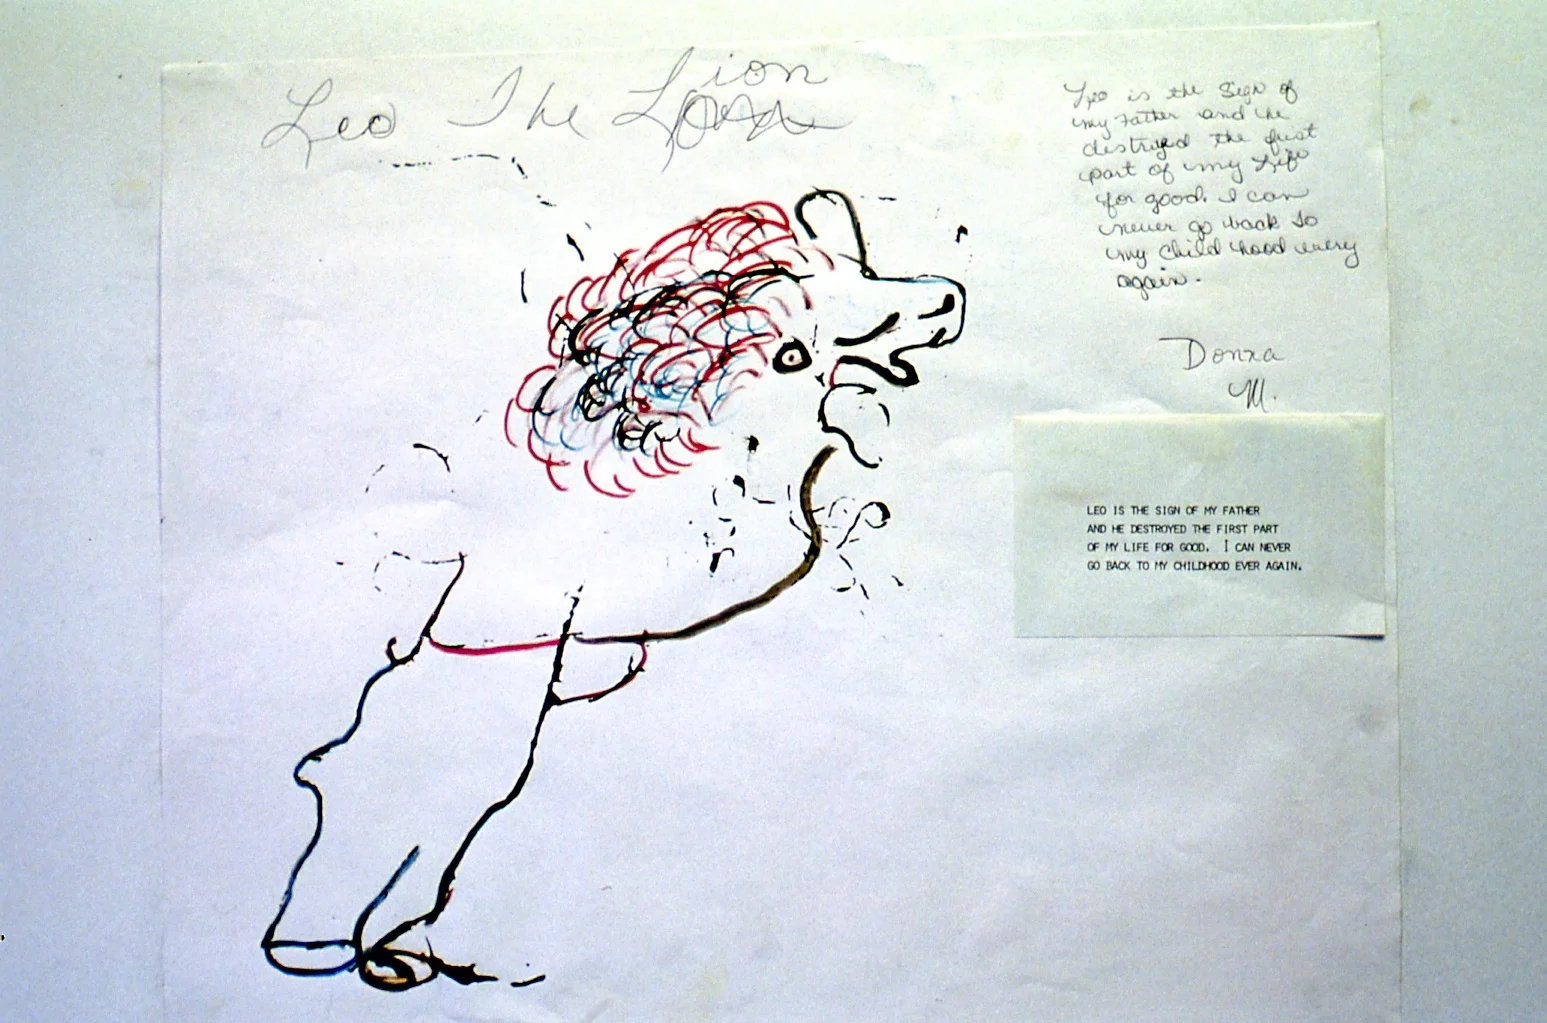 Leo The Lion
Leo is the Sign of
my Father and he
destroyed the first
part of my Life
for good. I can
never go back to
my child hood every
again.
Donna
M.
LEO IS THE SIGN OF MY FATHER
AND HE DESTROYED THE FIRST PART
OF MY LIFE FOR GOOD. I CAN NEVER
GO BACK TO MY CHILDHOOD EVER AGAIN.